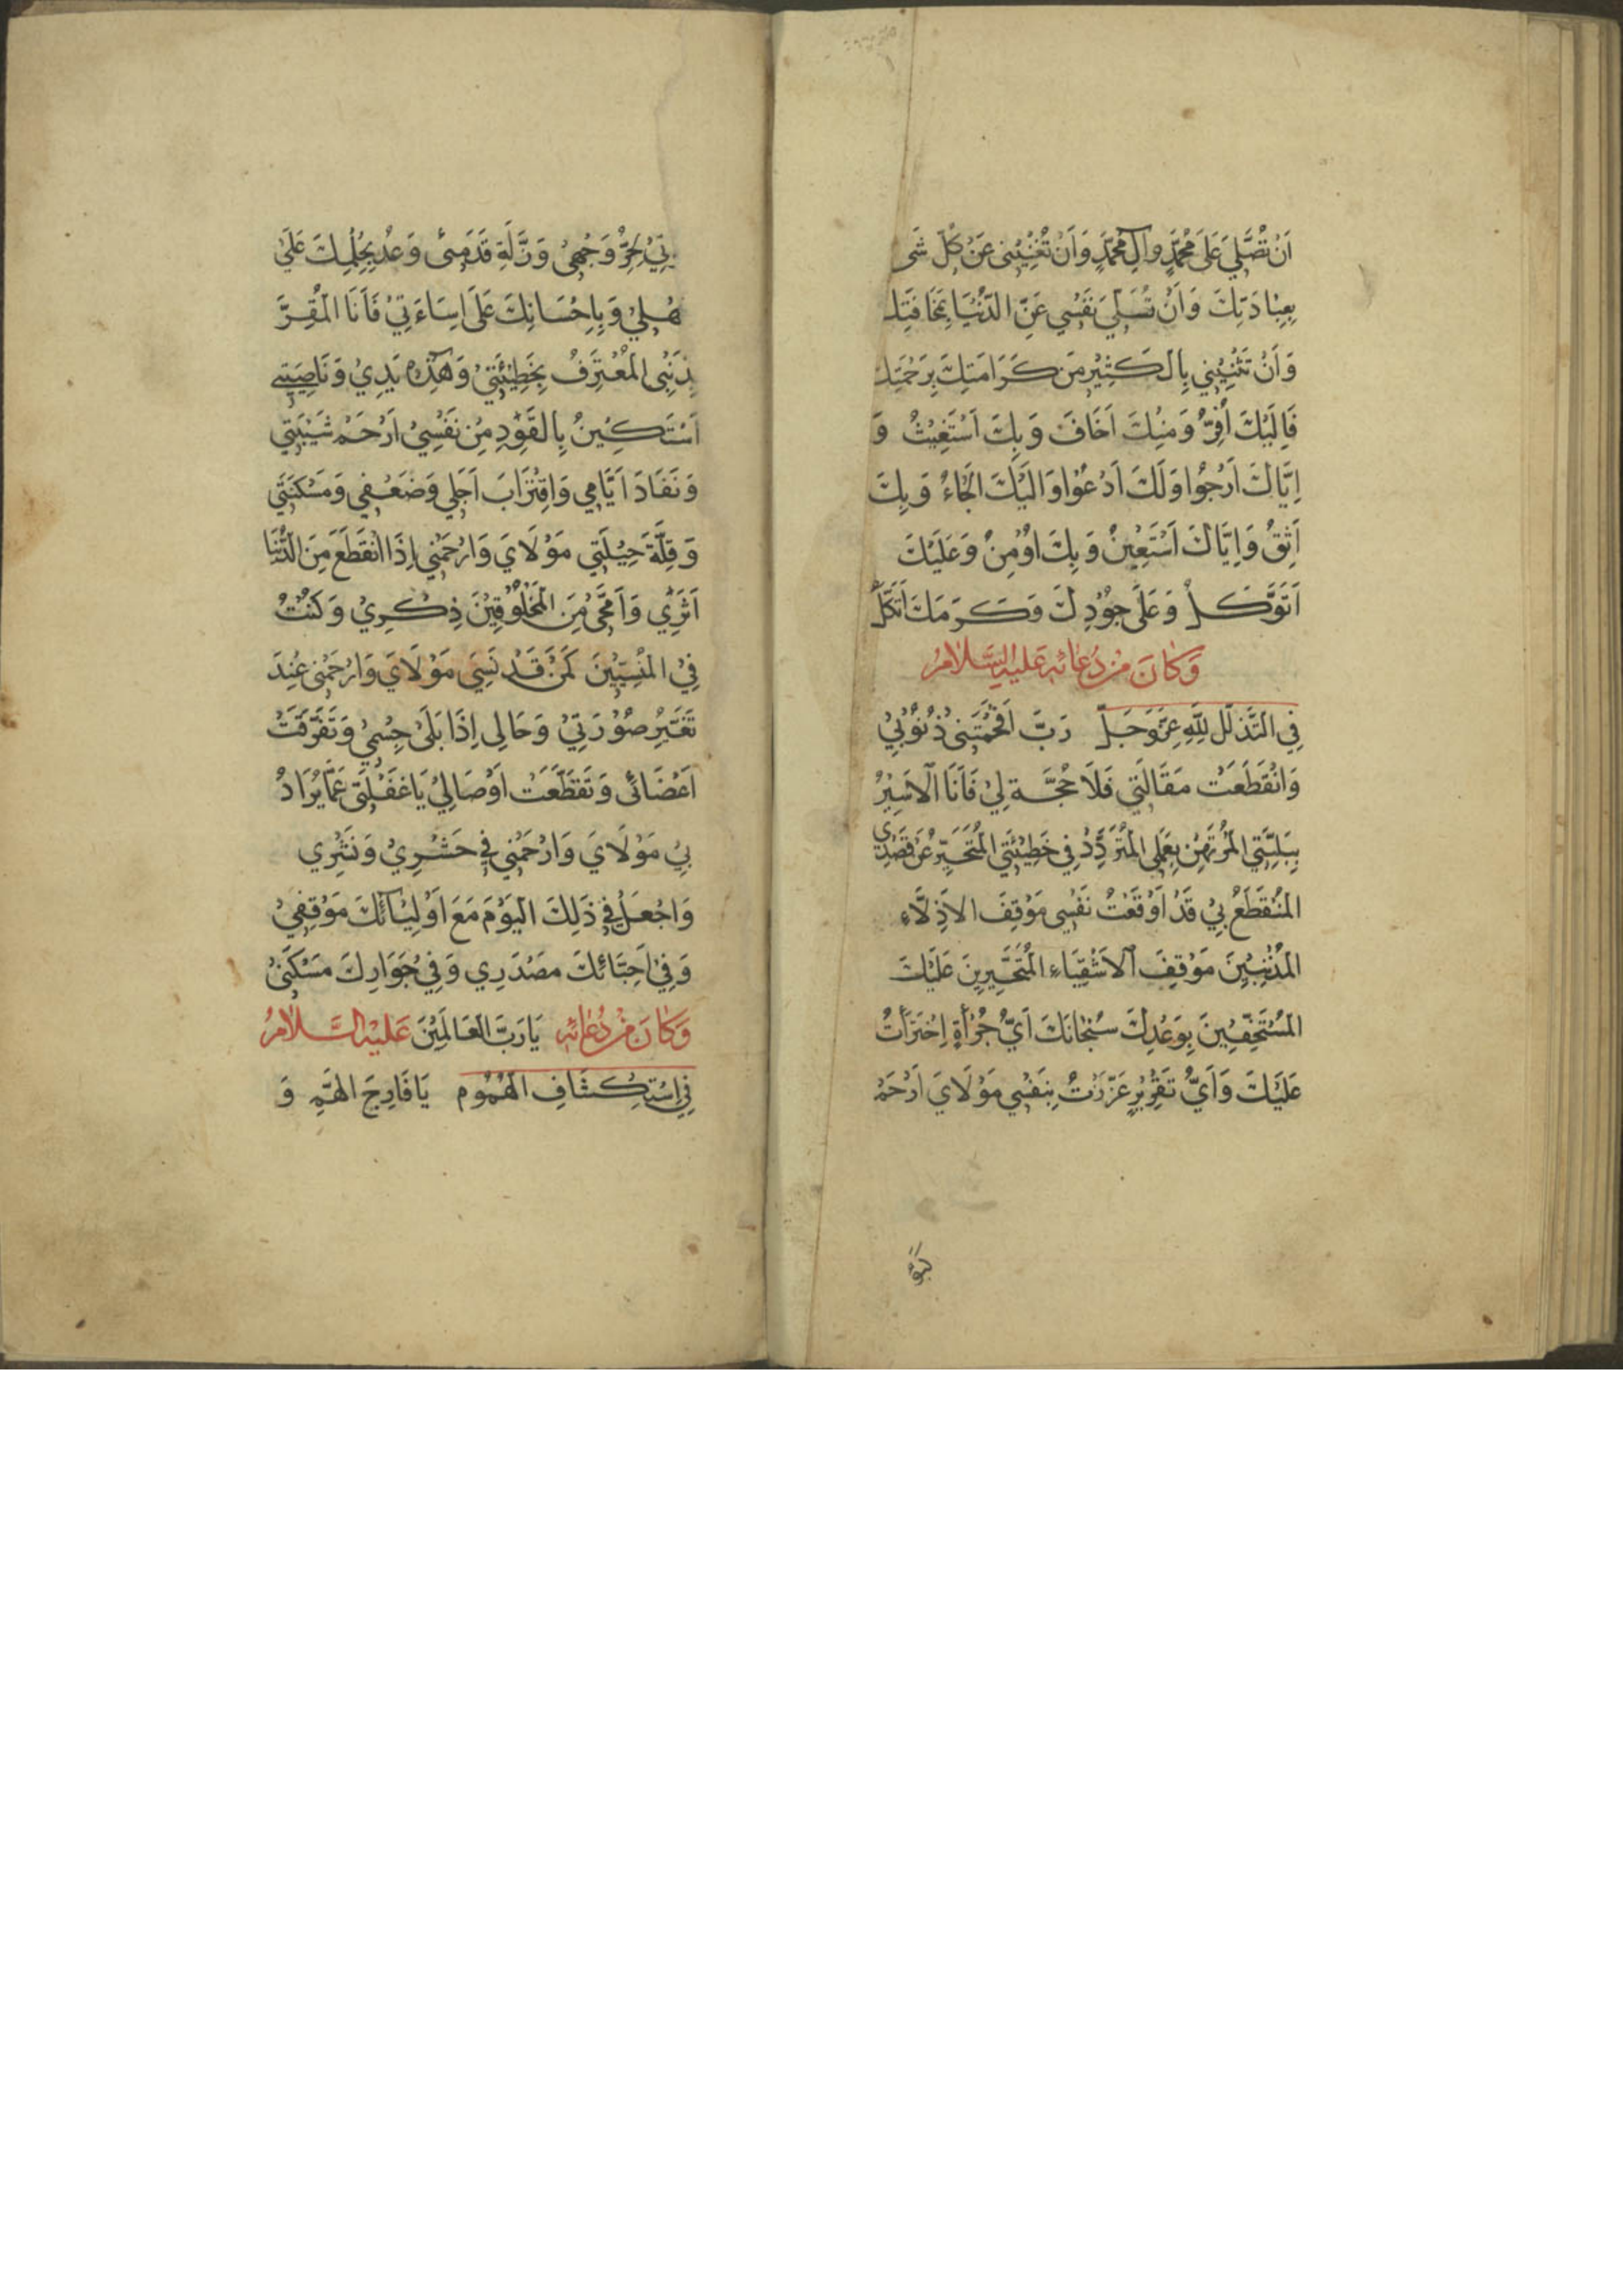 اَنْ تُصَلِّيَ عَلَى مُحَمَّدٍ وآلِ مُحَمَّدٍ وَاَنْ تُغْنِيَنِي عَنْ كُلِّ شَى
بِعِبَادَتِكَ وَاَنْ تُسَلِّيَ نَفْسِي عَنِ الدُّنْيَا بِمَخَافَتِكَ
وَاَنْ تَثْنِيَنِي بِالْكَثِيْرِ مِنْ كَرَامَتِكَ بِرَحْمَتِكَ
فَاِلَيْكَ اَفِرُّ وَمِنْكَ اَخَافُ وَبِكَ اَسْتَغِيْثُ وَ
اِيَّاكَ اَرْجُوْا وَلَكَ اَدْعُوْا وَاِلَيْكَ اَلْجَاءُ وَبِكَ
اَثِقُ وَاِيَّاكَ اَسْتَعِيْنُ وَبِكَ اُوْمِنُ وَعَلَيْكَ
اَتَوَكَّلُ وَعَلَى جُوْدِكَ وَكَرَمِكَ اَتَّكِلُ
وَكَانَ مِنْ دُعَائِهِ عَلَيْهِ السَّلَامُ
فِي التَّذَلُّلِ لِلّٰهِ عَزَّ وَجَلَّ رَبِّ اَفْحَمَتْنِي ذُنُوْبِيْ
وَانْقَطَعَتْ مَقَالَتِي فَلَا حُجَّةَ لِيْ فَاَنَا الْاَسِيْرُ
بِبَلِيَّتِي الْمُرْتَهَنُ بِعَمَلِي الْمُتَرَدِّدُ فِي خَطِيْئَتِي الْمُتَحَيِّرُ عَنْ قَصْدِي
الْمُنْقَطَعُ بِيْ قَدْ اَوْقَفْتُ نَفْسِي مَوْقِفَ الْاَذِلَّاءِ
الْمُذْنِبِيْنَ مَوْقِفَ الْاَشْقِيَاءِ الْمُتَجَرِّيْنَ عَلَيْكَ
الْمُسْتَخِفِّيْنَ بِوَعْدِكَ سُبْحَانَكَ اَيَّ جُرْأَةٍ اِجْتَرَأْتُ
عَلَيْكَ وَاَيَّ تَغْرِيْرٍ غَرَّرْتُ بِنَفْسِي مَوْلَايَ ارْحَمْ
بِيْ لِحُرِّ وَجْهِيْ وَزَلَّةِ قَدَمِيْ وَعُدْ بِحِلْمِكَ عَلَى
جَهْلِي وَبِاِحْسَانِكَ عَلَى اِسَاءَتِيْ فَاَنَا الْمُقِرُّ
بِذَنْبِي الْمُعْتَرِفُ بِخَطِيْئَتِيْ وَهٰذِهِ يَدِيْ وَنَاصِيَتِي
اَسْتَكِيْنُ بِالْقَوَدِ مِنْ نَفْسِيْ اِرْحَمْ شَيْبَتِي
وَنَفَادَ اَيَّامِي وَاقْتِرَابَ اَجَلِي وَضَعْفِي وَمَسْكَنَتِي
وَقِلَّةَ حِيْلَتِي مَوْلَايَ وَارْحَمْنِي اِذَا انْقَطَعَ مِنَ الدُّنْيَا
اَثَرِي وَامَّحَى مِنَ الْمَخْلُوْقِيْنَ ذِكْرِيْ وَكُنْتُ
فِي الْمَنْسِيِّيْنَ كَمَنْ قَدْ نَسِيَ مَوْلَايَ وَارْحَمْنِي عِنْدَ
تَغَيُّرِ صُوْرَتِيْ وَحَالِي اِذَا بَلِيَ جِسْمِيْ وَتَفَرَّقَتْ
اَعْضَائِي وَتَقَطَّعَتْ اَوْصَالِيْ يَا غَفْلَتِي عَمَّا يُرَادُ
بِيْ مَوْلَايَ وَارْحَمْنِي فِي حَشْرِيْ وَنَشْرِي
وَاجْعَلْ فِي ذَلِكَ الْيَوْمَ مَعَ اَوْلِيَائِكَ مَوْقِفِيْ
وَفِي اَحِبَّائِكَ مَصْدَرِي وَفِي جِوَارِكَ مَسْكَنِيْ
يَا رَبَّ الْعَالَمِيْنَ وَكَانَ مِنْ دُعَائِهِ عَلَيْهِ السَّلَامُ
فِي اِسْتِكْشَافِ الْهُمُوْمِ يَا فَارِجَ الْهَمِّ وَ